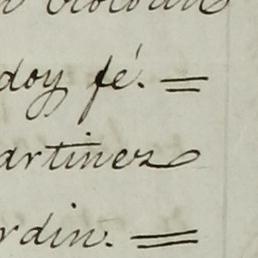 doy fé. =
artinez
rdin. =